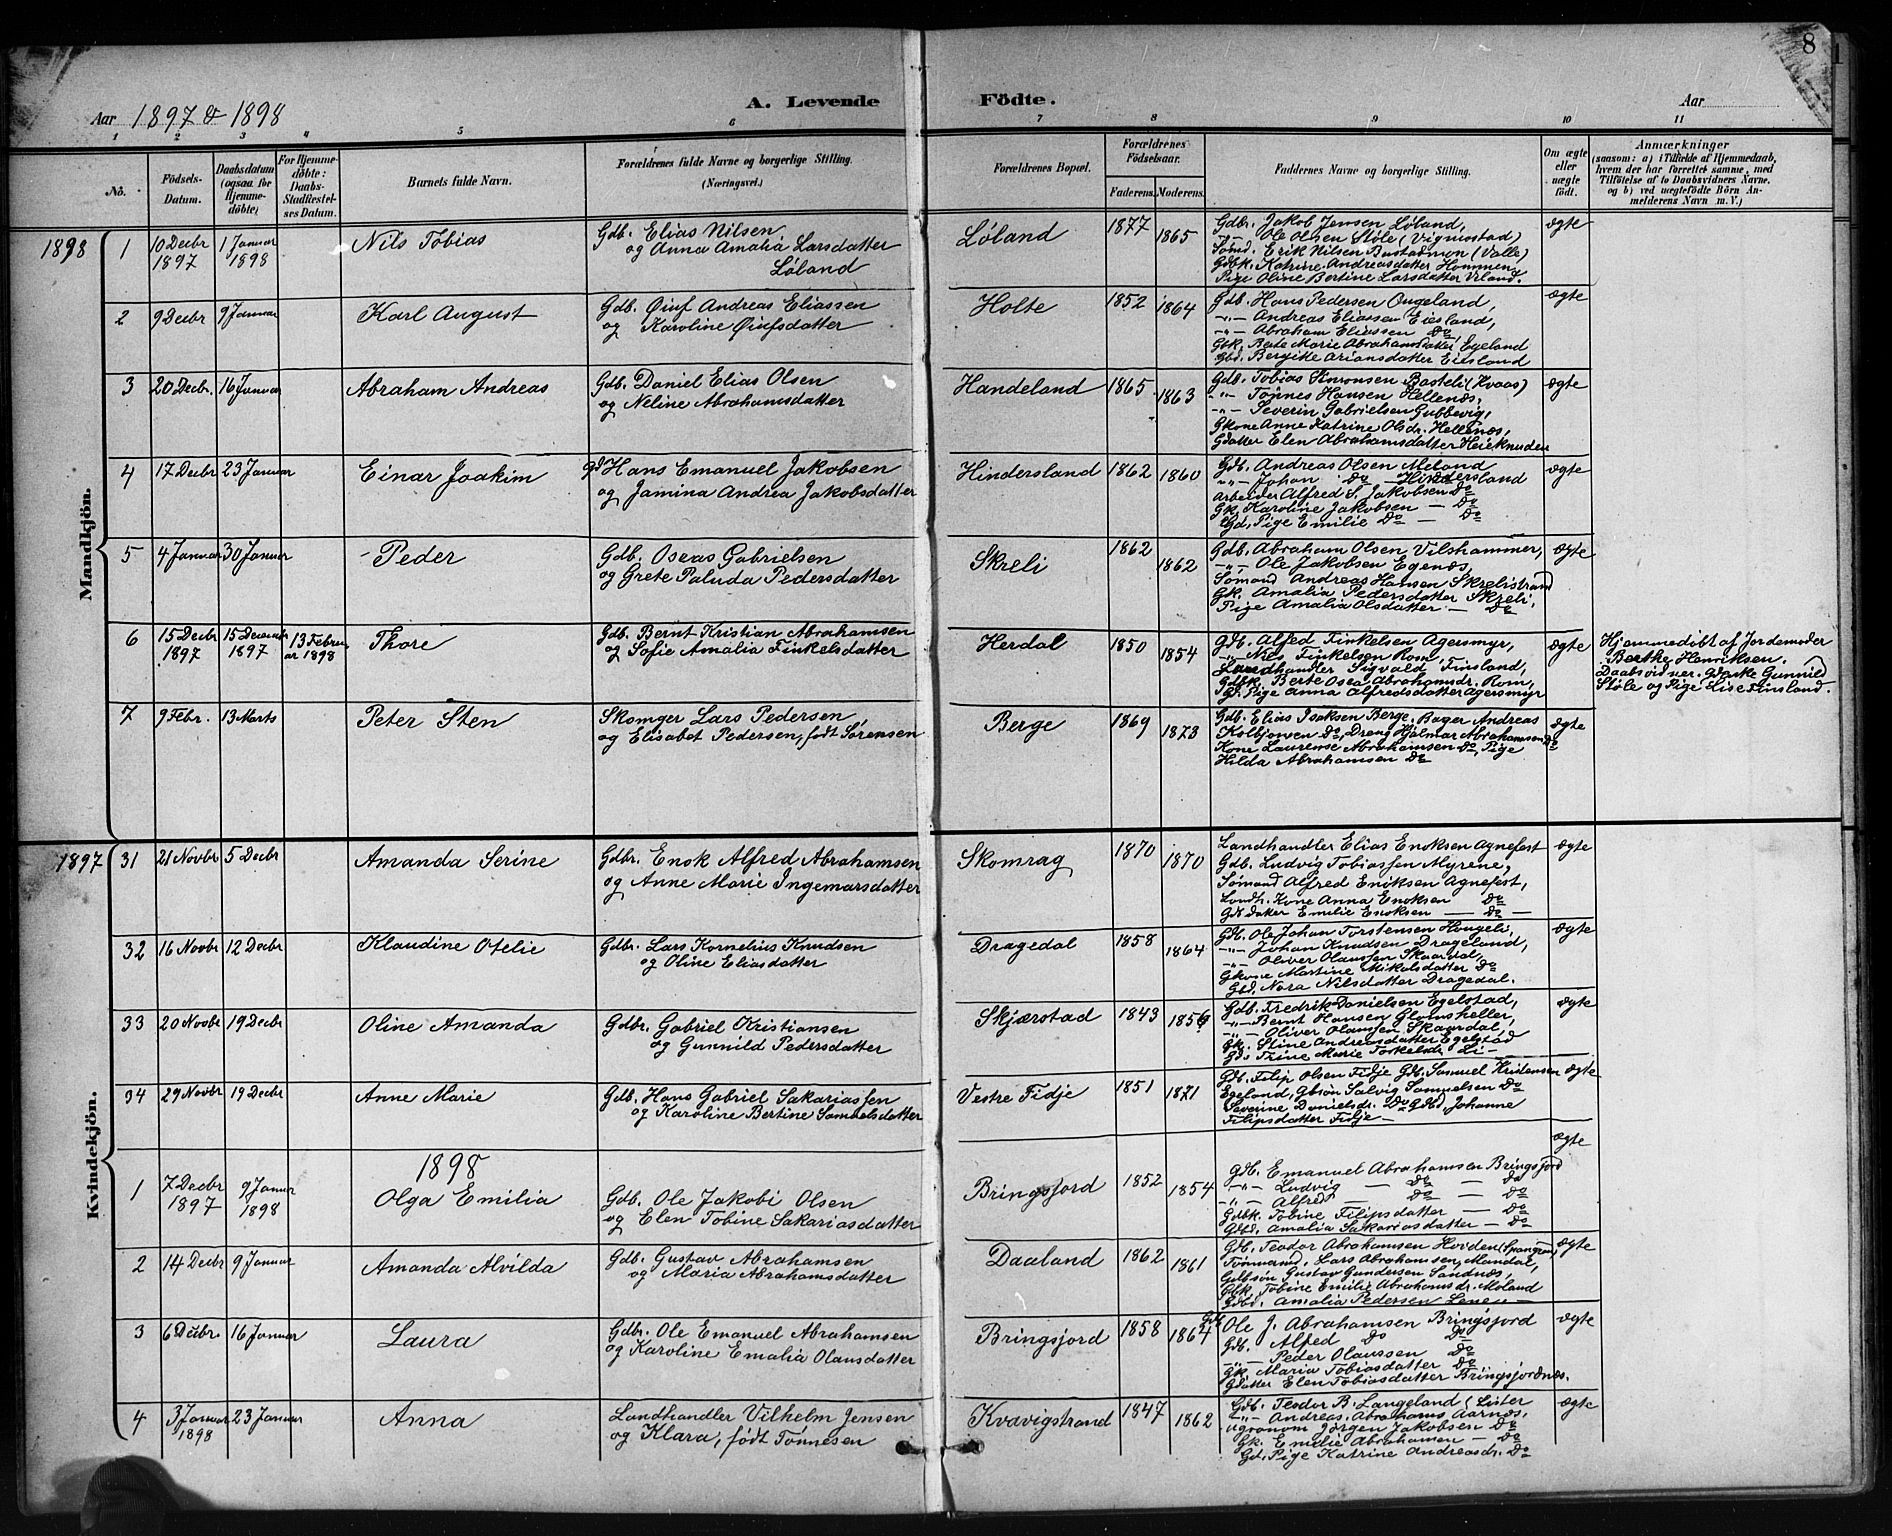 8
Aar 1897 & 1898
A. Levende Födte.
Aar
1 2 3 4 5 6 7 8 9 10 11
No.
Födsels-Datum.
Daabsdatum (ogsaa for Hjemmedöbte)
For Hjemmedöbte: Daabs-Stadfestelses Datum.
Barnets fulde Navn.
Forældrenes fulde Navne og borgerlige Stilling. (Næringsvei.)
Forældrenes Bopæl.
Forældrenes Födselsaar.
Faderens. Moderens.
Faddernes Navne og borgerlige Stilling.
Om ægte eller uægte födt.
Anmærkninger
(saasom: a) i Tilfælde af Hjemmedaab, hvem der har forrettet samme, med Tilföielse af to Daabsvidners Navne, og b) ved uægtefödte Börn Anmelderens Navn m. V.)
Mandkjön.
1898
1 10 Decbr 1897 1 Januar 1898 Nils Tobias
Gdb. Elias Nilsen
og Anna Amalia Larsdatter
Løland
Løland 1877 1865
Gdbr. Jakob Jensen Løland,
-"- Ole Olsen Støle (Vigmostad)
Sømd. Erik Nilsen Bustadmon (Valle)
Gdbk. Katrine Andreasdatter Hommen
Pige Oline Bertine Larsdatter Urland.
ægte
2 9 Decbr 9 Januar Karl August
Gdb. Øiuf Andreas Eliassen
og Karoline Øiufsdatter
Holte 1852 1864
Gdb. Hans Pedersen Ougeland,
-"- Andreas Eliassen Eiesland,
-"- Abraham Eliassen Do
Gbk. Berte Marie Abrahamsdatter Egeland
Gbd. Bergitte Ariansdatter Eiesland
ægte
3 20 Decbr. 16 Januar Abraham Andreas
Gdb. Daniel Elias Olsen
og Neline Abrahamsdatter
Handeland 1865 1863
Gdb. Tobias Simonsen Basteli (Kvaas)
-"- Tønnes Hansen Hellenæs,
-"- Severin Gabrielsen Gubbevig,
Gkone Anne Katrine Olsdr. Hellenæs,
Gdatter Elen Abrahamsdatter Heieknuden
ægte
4 17 Decbr 23 Januar Einar Joakim
Gd Hans Emanuel Jakobsen
og Jamina Andrea Jakobsdatter
Hindersland 1862 1860
Gdb. Andreas Olsen Meland
-"- Johan Do Hindersland
arbeider Alfred S. Jakobsen Do
Gk. Karoline Jakobsen — Do
Gd. Pige Emilie Do — Do
ægte
5 4 Januar 30 Januar Peder
Gdb. Oseas Gabrielsen
og Grete Paluda Pedersdatter
Skreli 1862 1862
Gdb. Abraham Olsen Vilshammer,
-"- Ole Jakobsen Egenæs,
Sømand Andreas Hansen Skrelistrand
Gk. Amalia Pedersdatter Skreli,
Pige Amalia Olsdatter — Do
ægte
6 15 Decbr 1897 15 December 1897 13 Februar 1898 Thore
Gdb. Bernt Kristian Abrahamsen
og Sofie Amalia Finkelsdatter
Herdal 1850 1854
Gdb. Alfed Finkelsen Agersmyr,
-"- Nils Finkelsen Rom,
Landhandler Sigvald Finsland,
Gdbk. Berte Osea Abrahamsdr. Rom,
Gd. Pige Anna Alfredsdatter Agersmyr
ægte
Hjemmedøbt af Jordemoder
Berthe Henriksen.
Daabsvidner: Gunnild
Støle og Pige Lise Finsland.
7 9 Febr. 13 Marts Peter Sten
Skomger Lars Pedersen,
og Elisabet Pedersen, født Sørensen
Berge 1869 1873
Gdb. Elias Isaksen Berge, Bager Andreas
Kolbjowen Do, Dreng Hjalmar Abrahamsen Do
Kone Laurense Abrahamsen Do, Pige
Hilda Abrahamsen Do
ægte
Kvindekjön.
1897
31 21 Novbr 5 Decbr Amanda Serine
Gdbr. Enok Alfred Abrahamsen
og Anne Marie Ingemarsdatter
Skomrag 1870 1870
Landhandler Elias Enoksen Agnefest
Gdb. Ludvig Tobiassen Myrene,
Sømand Alfred Eniksen Agnefest,
Landh. Kone Anna Enoksen Do
Gdb datter Emilie Enoksen — Do —
ægte
32 16 Novbr 12 Decbr Klaudine Otelie
Gdbr. Lars Kornelius Knudsen
og Oline Eliasdatter
Dragedal 1858 1864
Gdb. Ole Johan Torstensen Hougeli,
-"- Johan Knudsen Drageland,
-"- Oliver Olaussen Skaardal,
Gkone Martine Mikalsdatter Do
Gbd. Nora Nilsdatter Dragedal.
ægte
33 20 Novbr 19 Decbr Oline Amanda
Gdbr. Gabriel Kristiansen
og Gunnild Pedersdatter
Skjærstad 1843 1856
Gdb. Fredrik Danielsen Egelstad,
-"- Bernt Hansen Glomsheller,
-"- Oliver Olaussen Skaardal,
Gk. Stine Andreasdatter Egelstad
Gd. Trine Marie Torkelsdr. Li —
ægte
34 29 Novbr 19 Decbr Anne Marie
Gdb. Hans Gabriel Sakariassen
og Karoline Bertine Samuelsdatter
Vestre Fidje 1851 1871
Gdb. Filip Olsen Fidje Gdb. Samuel Kristensen
Egeland, Gbsøn Salvig Samuelsen Do
Severine Danielsdr. Do Gdbd. Johanne
Filipsdatter Fidje —
ægte
1898
1 7 Decbr 1897 9 Januar 1898 Olga Emilia
Gdb. Ole Jakobi Olsen
og Elen Tobine Sakariasdatter
Bringsjord 1852 1854
Gdb. Emanuel Abrahamsen Bringsjord
-"- Ludvig — Do — Do
-"- Alfred — Do — Do
Gdbk. Tobine Filipsdatter — Do
Gdbd. Amalia Sakariasdatter — Do
ægte
2 14 Decbr 9 Januar Amanda Alvilda
Gdb. Gustav Abrahamsen
og Maria Abrahamsdatter
Daaland 1862 1861
Gdb. Teodor Abrahamsen Hovden (Spangreid)
Tømmand. Lars Abrahamsen, Mandal,
Gdbsøn Gustav Gundersen Sandnæs,
Gdbk. Tobine Emilie Abrahamsdr. Møland
Gdbd. Amalia Pedersen Lene —
ægte
3 6 Decbr. 16 Januar Laura
Gdbr. Ole Emanuel Abrahamsen
og Karoline Emalia Olausdatter
Bringsjord 1858 1864
Gdb Ole J. Abrahamsen Bringsjord
Gdb. Alfred Do Do
— Peder Olaussen Do
Gk. Maria Tobiasdatter Do
Gdatter Elen Tobiasdatter Bringsjordnæs.
ægte
4 3 Januar 1898 23 Januar Anna
Landhandler Vilhelm Jensen
og Klara, født Tønnesen
Kvavigstrand 1847 1862
Gdb. Teodor B. Langeland (Lister
-"- Andreas Abrahams. Aarnæs,
agronom Jørgen Jakobsen Do
Gk. Emilie Abrahamsen — Do
Gd. Pige Katrine Andreasdr. Do
ægte